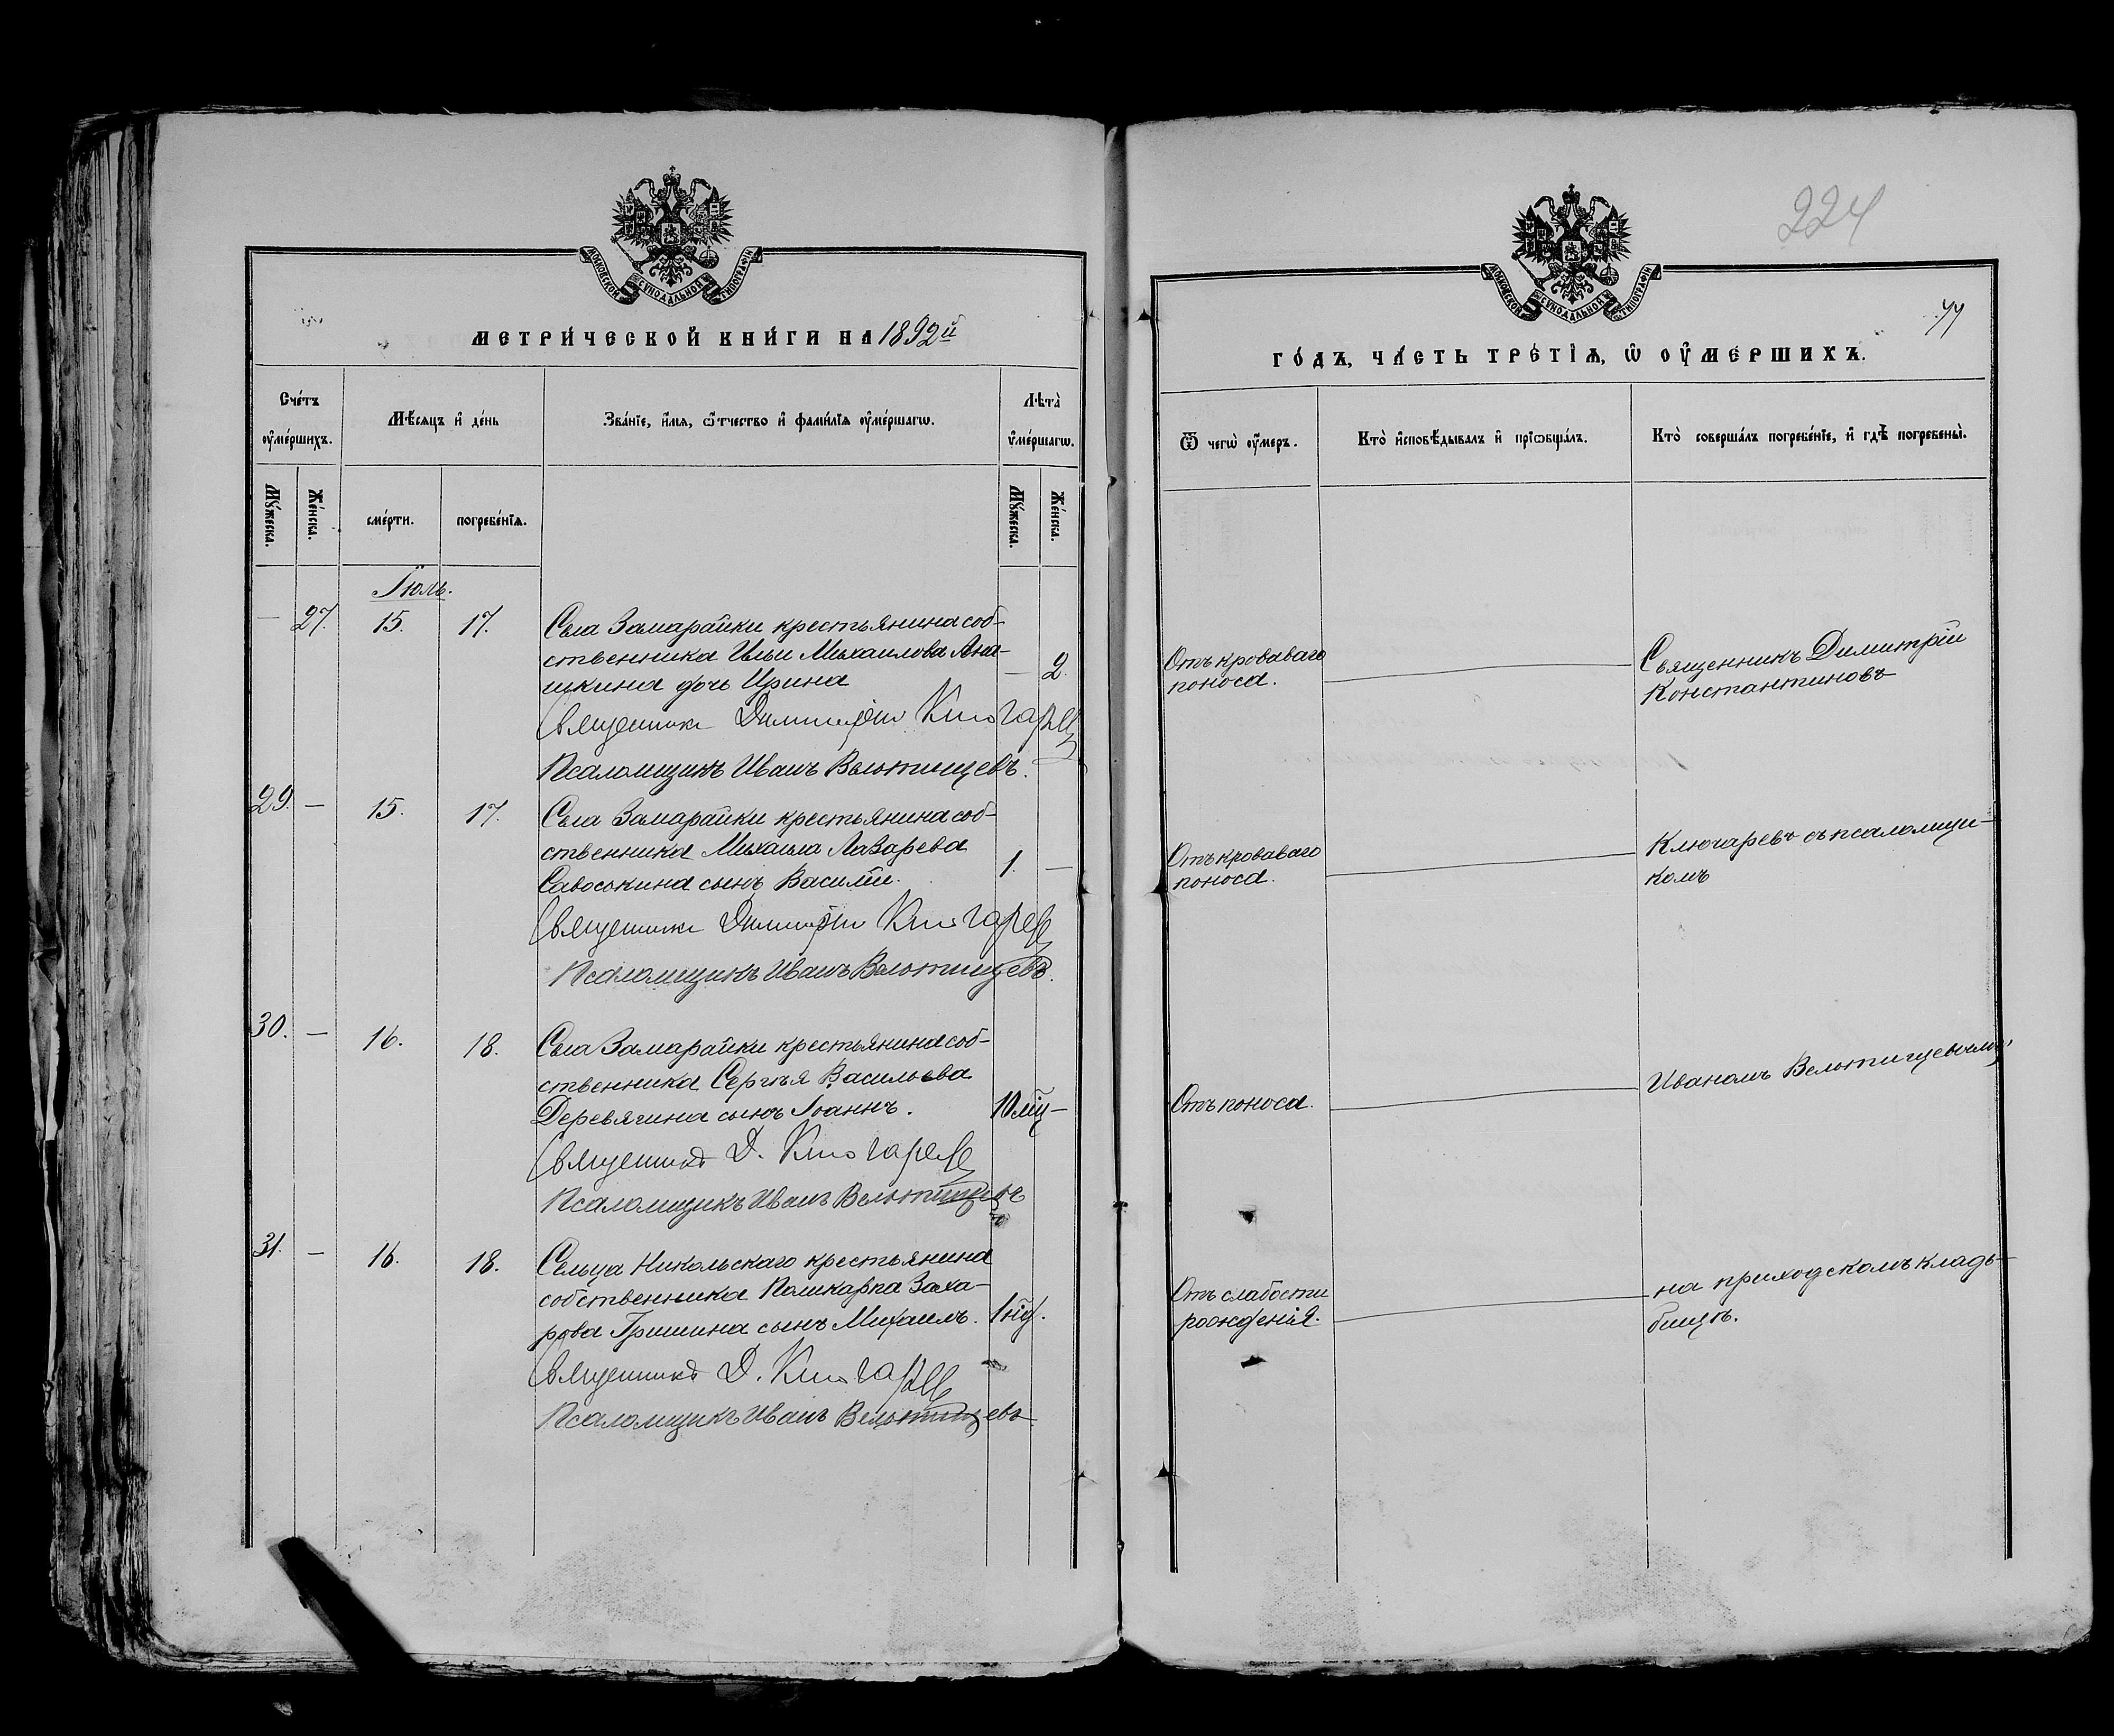 МОСКОВСКОЙ СѴНОДАЛЬНОЙ ТИПОГРАФІИ
МЕТРИ́ЧЕСКОЙ КНИ́ГИ НА 1892й
Сче́тъ ᲂу҆ме́ршихъ.
Мѣ́сяцъ и҆ де́нь
Зва́нїе, и҆́мѧ, ѻ҆́тчество и҆ фами́лїѧ ᲂу҆ме́ршагѡ.
Лѣта̀ ᲂу҆ме́ршагѡ.
Мꙋ́жеска.
Же́нска.
сме́рти.
погребе́нїѧ.
Мꙋ́жеска.
Же́нска.
Іюль.
— 27. 15. 17. Села Замарайки крестьянина соб-
ственника Ильи Михаилова Ана-
шкина дочь Ирина — 2.
Священникъ Димитрій Ключаревъ
Псаломщикъ Иванъ Вельтищевъ.
29. — 15. 17. Села Замарайки крестьянина соб-
ственника Михаила Лазарева
Савоськина сынъ Василій. 1. —
Священникъ Димитрій Ключаревъ
Псаломщикъ Иванъ Вельтищевъ.
30. — 16. 18. Села Замарайки крестьянина соб-
ственника Сергѣя Васильева
Деревягина сынъ Іоаннъ. 10 мц —
Священникъ Д. Ключаревъ
Псаломщикъ Иванъ Вельтищевъ
31. — 16. 18. Сельца Никольскаго крестьянина
собственника Поликарпа Заха-
рова Гришина сынъ Михаилъ. 1 нд.
Священникъ Д. Ключаревъ
Псаломщикъ Иванъ Вельтищевъ
224
МОСКОВСКОЙ СѴНОДАЛЬНОЙ ТИПОГРАФІИ
ГО́ДЪ, ЧА́СТЬ ТРЕ́ТЇѦ, Ѡ҆ ОУ҆МЕ́РШИХЪ.
Ѿ чегѡ̀ ᲂу҆́меръ.
Кто̀ и҆сповѣ́дывалъ и҆ прїѡбща́лъ.
Кто̀ соверша́лъ погребе́нїе, и҆ гдѣ̀ погребены̀.
Отъ кроваваго
поноса.
Священникъ Димитрій
Константиновъ
Отъ кроваваго
поноса.
Ключаревъ съ псаломщи-
комъ
Отъ поноса.
Иваномъ Вельтищевымъ,
Отъ слабости
рожденія.
на приходскомъ клад-
бищѣ.